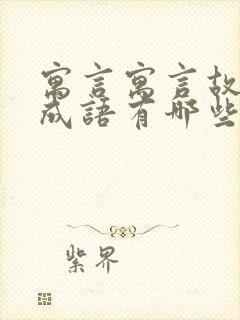 寓言寓言故
成語有哪些
紫界